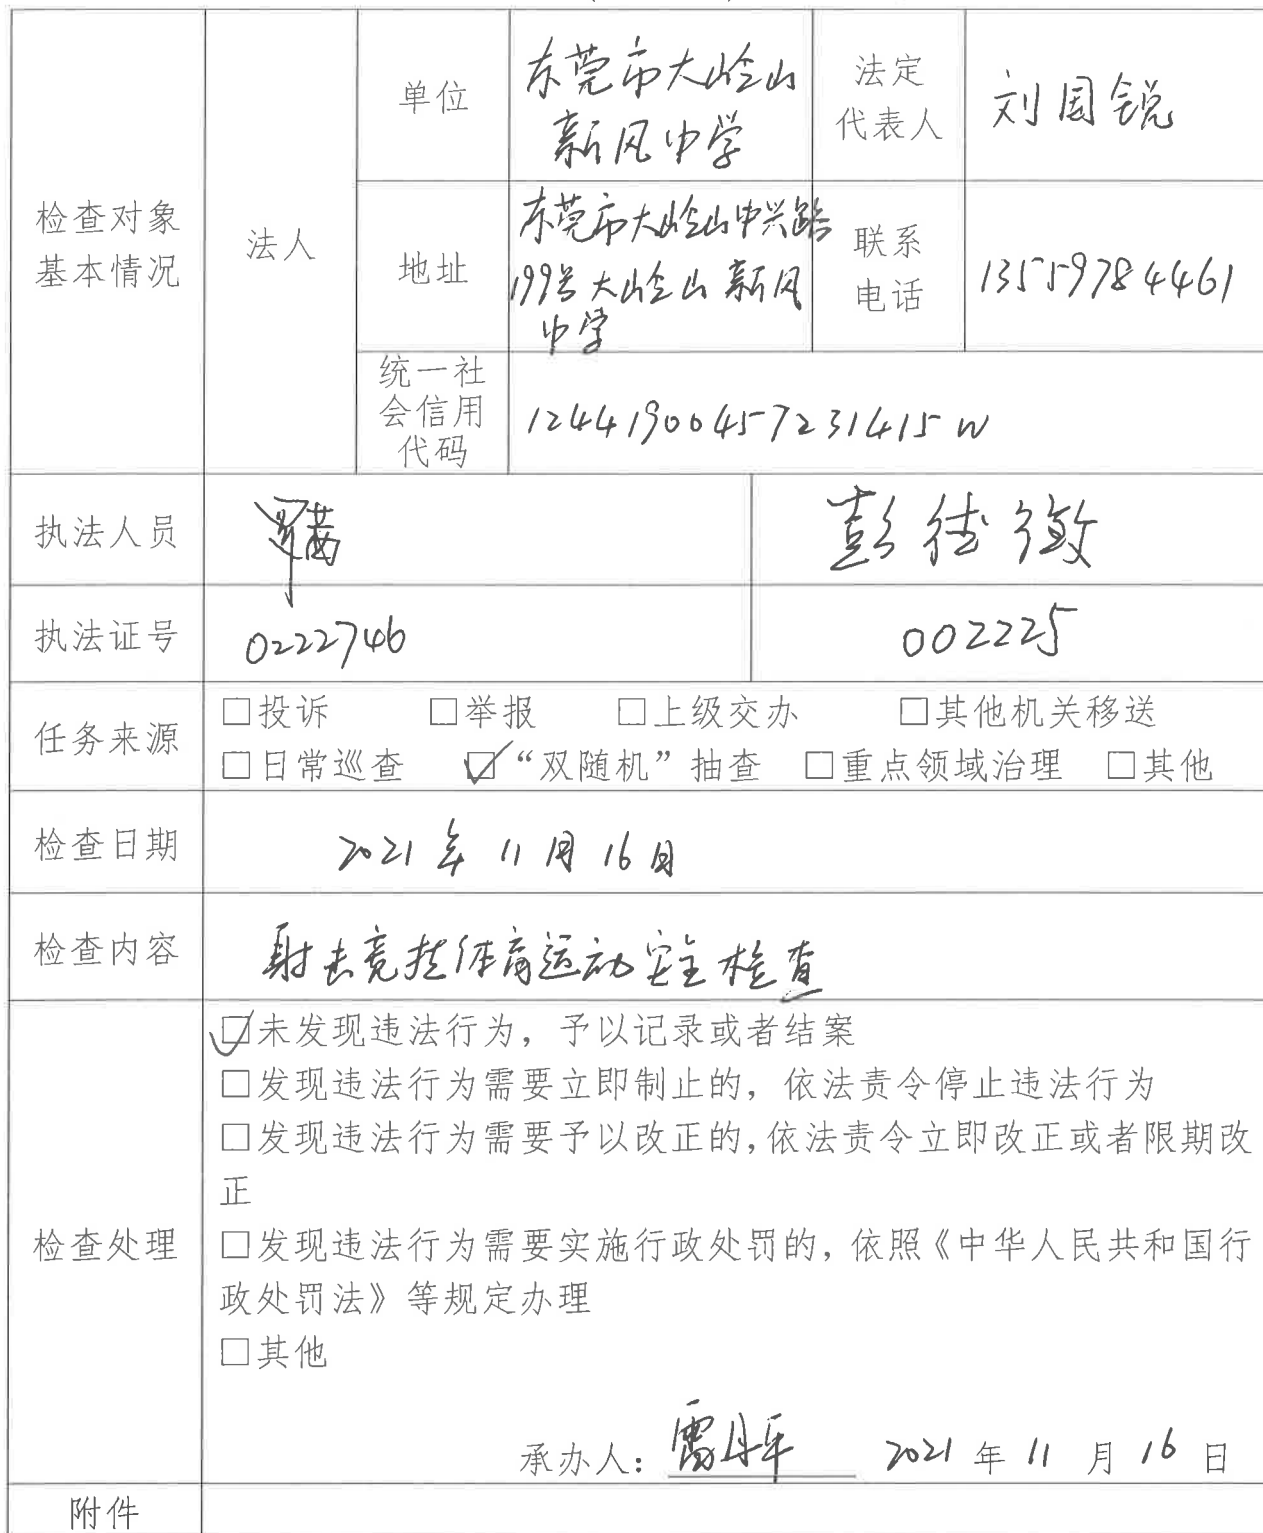 单位
东莞市大岭山
新风中学
法定
代表人
刘国锐
检查对象
基本情况
法人
地址
东莞市大岭山中兴路
199号大岭山新风
中学
联系
电话
13559784461
统一社
会信用
代码
12441900457231415W
执法人员
彭德
执法证号
0222746
002225
任务来源
□投诉 □举报 □上级交办 □其他机关移送
□日常巡查 ☑“双随机”抽查 □重点领域治理 □其他
检查日期
2021年11月16日
检查内容
射击竞技体育运动安全检查
检查处理
☑未发现违法行为，予以记录或者结案
□发现违法行为需要立即制止的，依法责令停止违法行为
□发现违法行为需要予以改正的，依法责令立即改正或者限期改
正
□发现违法行为需要实施行政处罚的，依照《中华人民共和国行
政处罚法》等规定办理
□其他
承办人： 2021年11月16日
附件